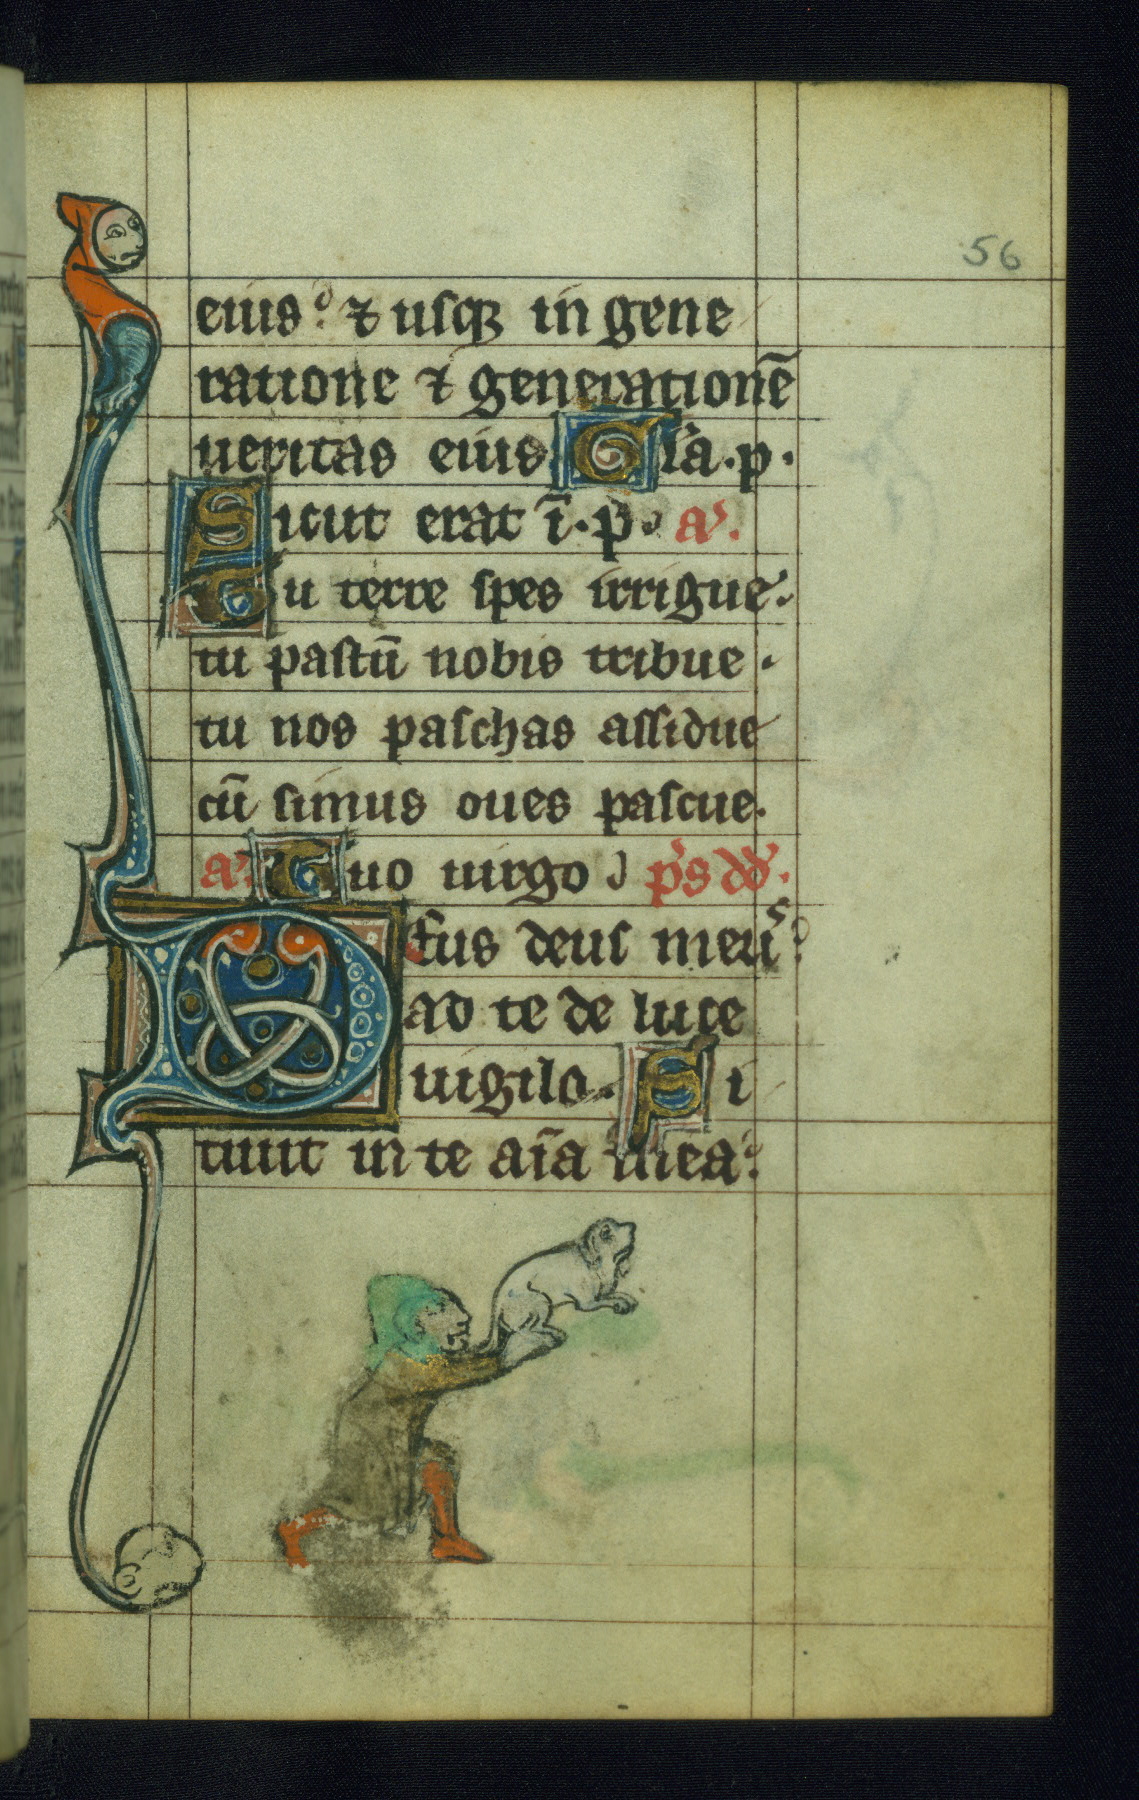 56
eius. ⁊ usq; in gene
ratione ⁊ generationē
ueritas eius Gła.p.
Sicut erat ī.p. a͛.
Tu terre spes irrigue.
tu pastū nobis tribue.
tu nos paschas assidue
cū simus oues pascue.
a͛. Tuo uirgo p͛s dd͛.
Deus deus meus
ad te de luce
uigilo. Si
tiuit in te aīa mea